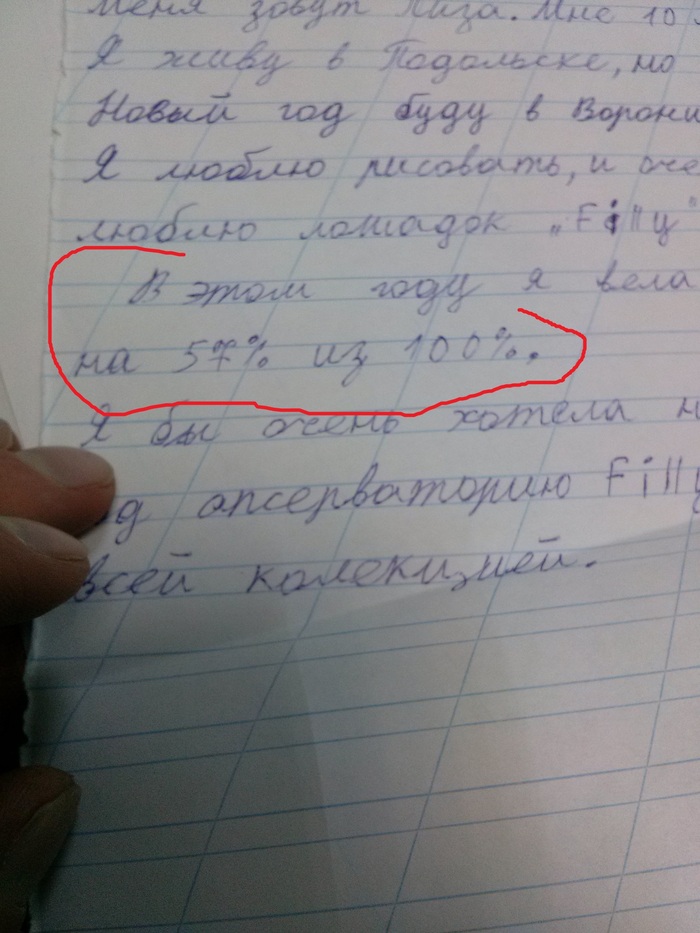 Меня зовут Лиза. Мне 10
Я живу в Подольске, но
Новый год буду в Ворони
Я люблю рисовать, и оче
люблю лошадок „Filly"
В этом году я вела
на 57% из 100%.
Я бы очень хотела н
од апсерваторию Filly
всей колекцией.